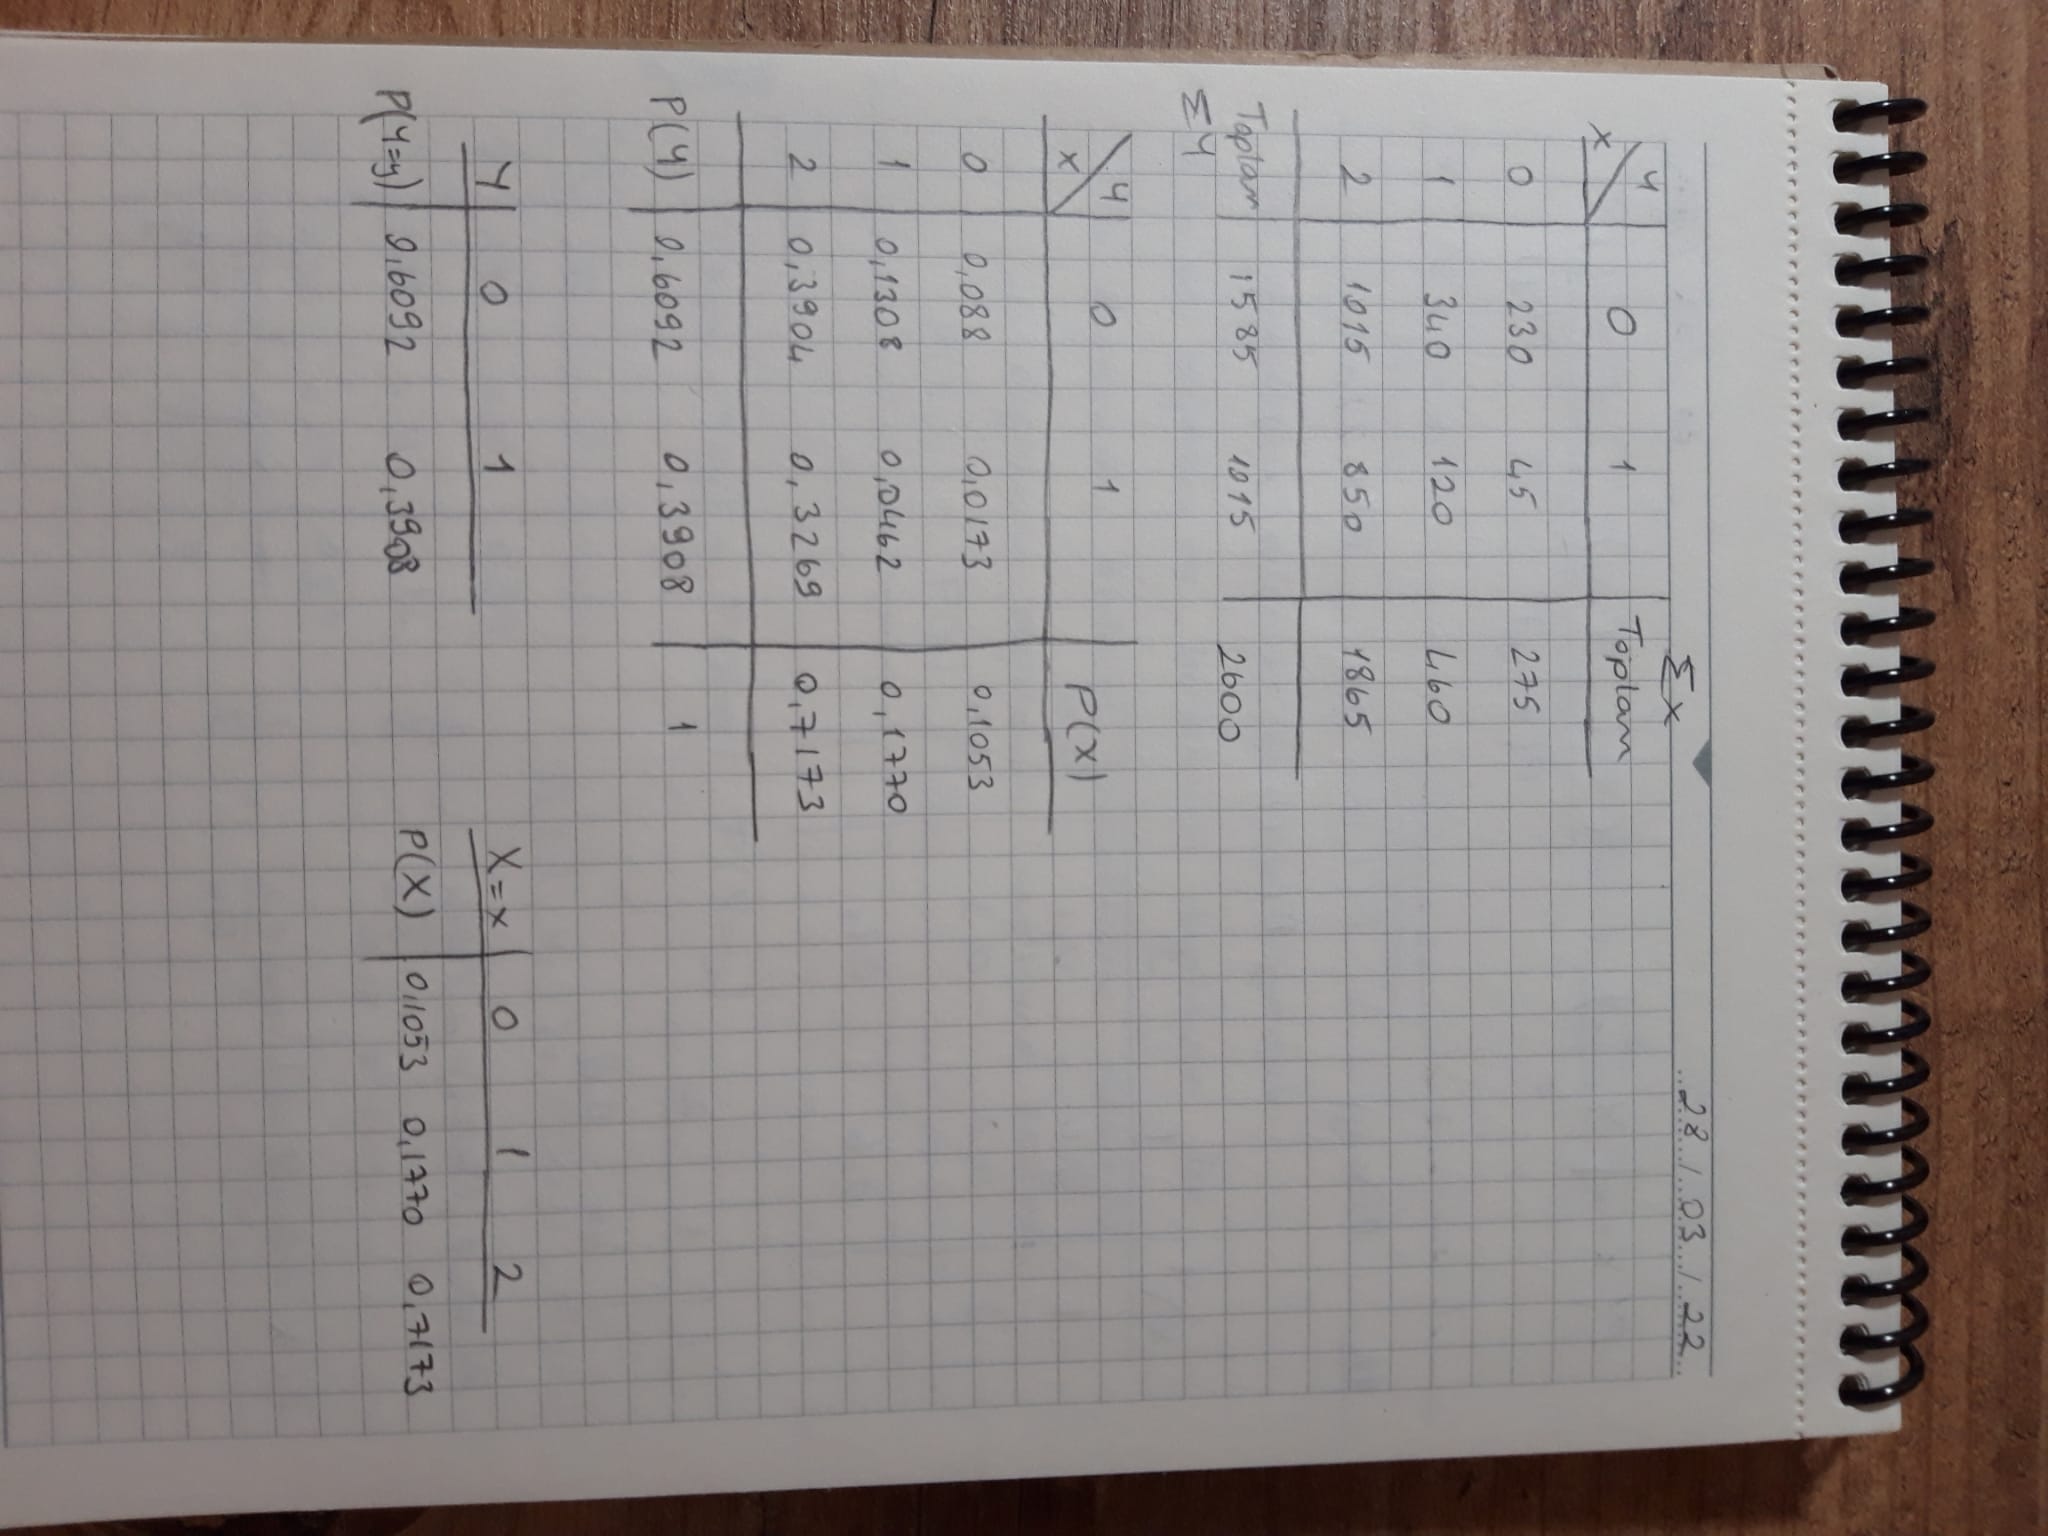 28/03/22
Σx
x/y 0 1 Toplam
0 230 45 275
1 340 120 460
2 1015 850 1865
Toplam 1585 1015 2600
Σy
x/y 0 1 P(x)
0 0,088 0,0173 0,1053
1 0,1308 0,0462 0,1770
2 0,3904 0,3269 0,7173
P(y) 0,6092 0,3908 1
Y 0 1
P(Y=y) 0,6092 0,3908
X=x 0 1 2
P(X) 0,1053 0,1770 0,7173